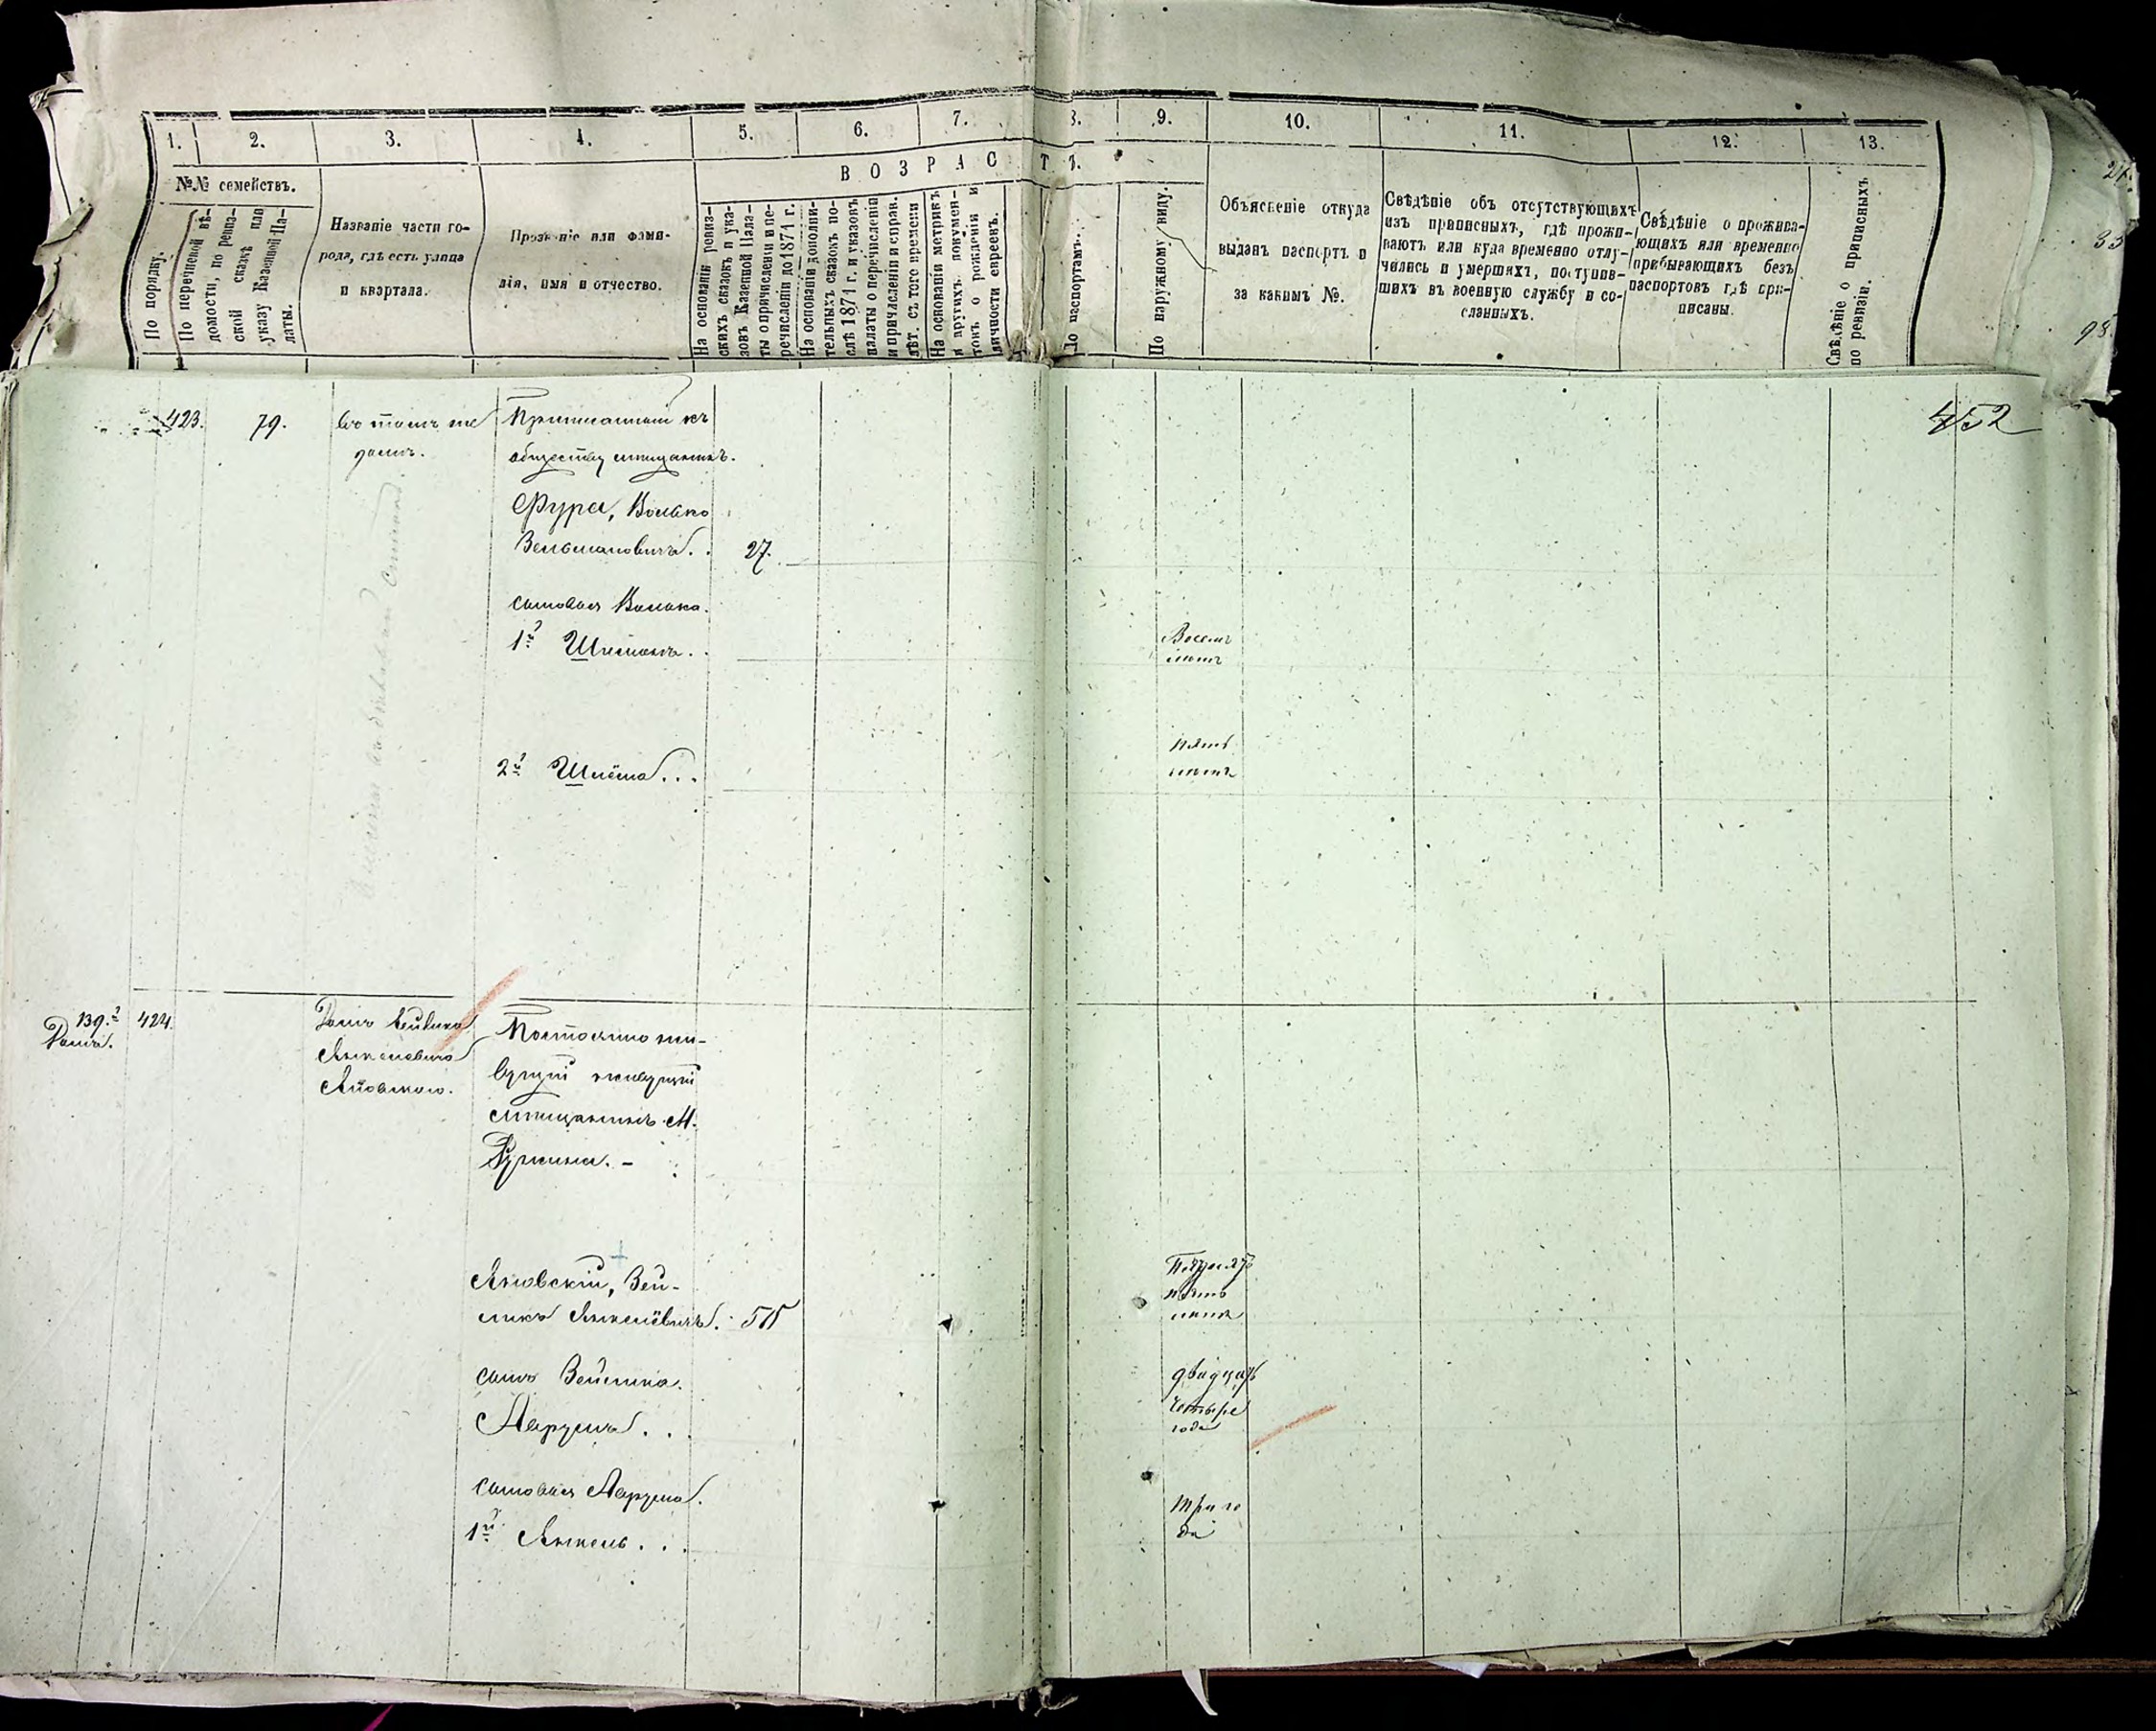 1.
2.
3.
4.
5.
6.
7.
8.
9.
10.
11.
12.
13.
В О З Р А С Т Ъ.
№№ семействъ.
По порядку.
По перечневой вѣ-
домости, по ревиз-
ской сказкѣ или
указу Казенной Па-
латы.
Названіе части го-
рода, гдѣ есть улица
и квартала.
Прозваніе или фами-
лія, имя и отчество.
На основаніи ревиз-
скихъ сказокъ и ука-
зовъ Казенной Пала-
ты о причисленіи и пе-
речисленіи до 1871 г.
На основаніи дополни-
тельныхъ сказокъ по-
слѣ 1871 г. и указовъ
палаты о перечисленіи
и причисленіи и справ.
лѣт. съ того времени
На основаніи метрикъ
и другихъ докумен-
товъ о рожденіи и
личности евреевъ.
По паспортамъ.
По наружному виду.
Объясненіе откуда
выданъ паспортъ и
за какимъ №.
Свѣдѣніе объ отсутствующихъ
изъ приписныхъ, гдѣ прожи-
ваютъ или куда временно отлу-
чились и умершихъ, поступив-
шихъ въ военную службу и со-
сланныхъ.
Свѣдѣніе о прожива-
ющихъ или временно
прибывающихъ безъ
паспортовъ гдѣ при-
писаны.
Свѣдѣніе о приписныхъ
по ревизіи.
452
423.
79.
Въ томъ же
домѣ.
Приписанный къ
обществу мѣщанинъ.
Фура, Волько
Зельмановичъ. .
27.
сыновья Волька.
1й Шлемонъ. .
Восемь
лѣтъ
2й Шлёма . . .
пять
лѣтъ
139.й
Домъ.
424.
Домъ Зейлика
Янкелевича
Яновскаго.
Постоянно жи-
вущій
мѣщанинъ М.
Яновскій, Зей-
ликъ Янкелёвичъ.
55
Пятдесятъ
пять
лѣтъ
сынъ Зейлика.
Ларумъ . . .
двадцать
четыре
года
сыновья Ларума.
1й Янкель . . .
три го
да